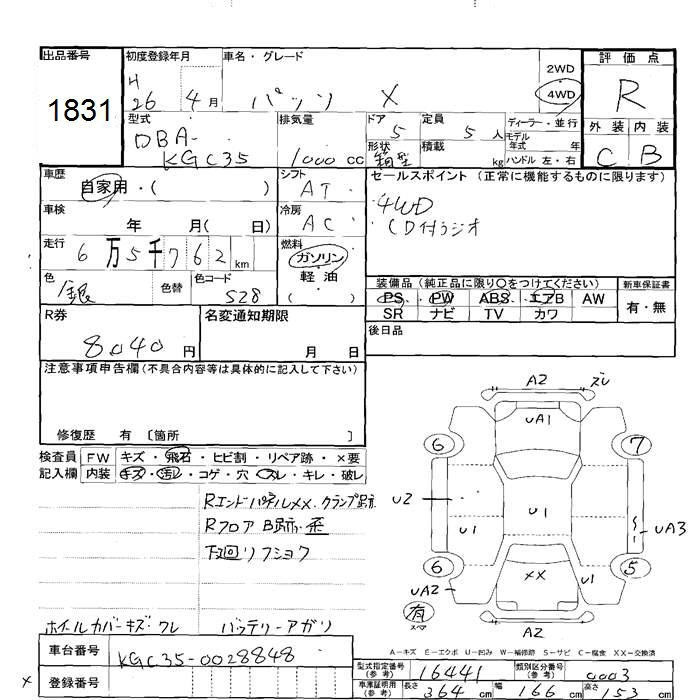 出品番号 初度登録年月 車名・グレード 2WD 評価点
1831 H 26 4月 パッソ X 4WD R
型式 排気量 ドア 定員 ディーラー・並行 外装 内装
DBA- 1000cc 5 5人 モデル年式 年式 C B
KGC35 形状 箱型 積載 kg ハンドル 左・右
車歴 自家用・( ) シフト AT セールスポイント (正常に機能するものに限ります)
車検 年 月( 日) 冷房 AC 4WD
走行 6万5千762km 燃料 ガソリン CD付ラジオ
色 銀 色替 色コード S28 軽油 ( )
装備品(純正品に限り○をつけてください) 新車保証書
PS PW ABS エアB AW 有・無
SR ナビ TV カワ
R券 8040円 名変通知期限 月 日 後日品
注意事項申告欄(不具合内容等は具体的に記入して下さい)
修復歴 有 〔箇所 〕
検査員 FW キズ・飛石・ヒビ割・リペア跡・×要
記入欄 内装 キズ・汚レ・コゲ・穴・スレ・キレ・破レ
A2 ズレ
UA1
6 7
U2 U1 U1 UA3
6 5
UA2 XX U1
有 スペア
A2
RエンドパネルXX.クランプ跡
RフロアB跡・歪
下廻リフショク
ホイールカバーキズ・ワレ バッテリーアガリ
A-キズ E-エクボ U-凹み W-補修跡 S-サビ C-腐食 XX-交換済
車台番号 KGC35-0028848
型式指定番号(参考) 16441 類別区分番号(参考) 0003
× 登録番号
車庫証明用(参考) 長さ 364cm 幅 166cm 高さ 153cm